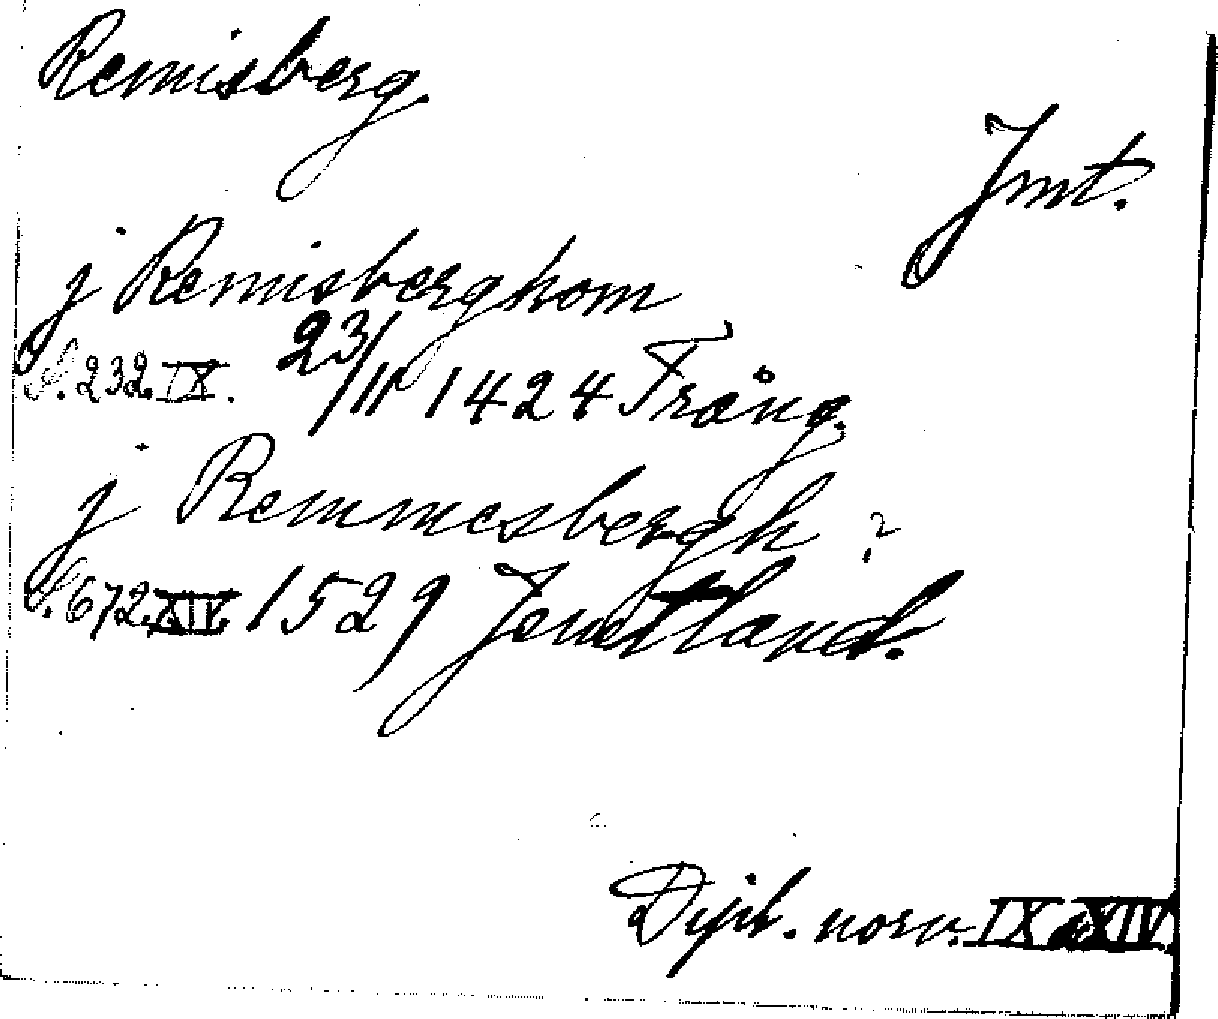 Remisberg.
Jmt.
j Remisberghom
S. 232 IX. 23/11 1424 Trång.
j Remmesbergh ?
S. 672 XIV. 1529 Jemtland.
Dipl. norv. IX & XIV.